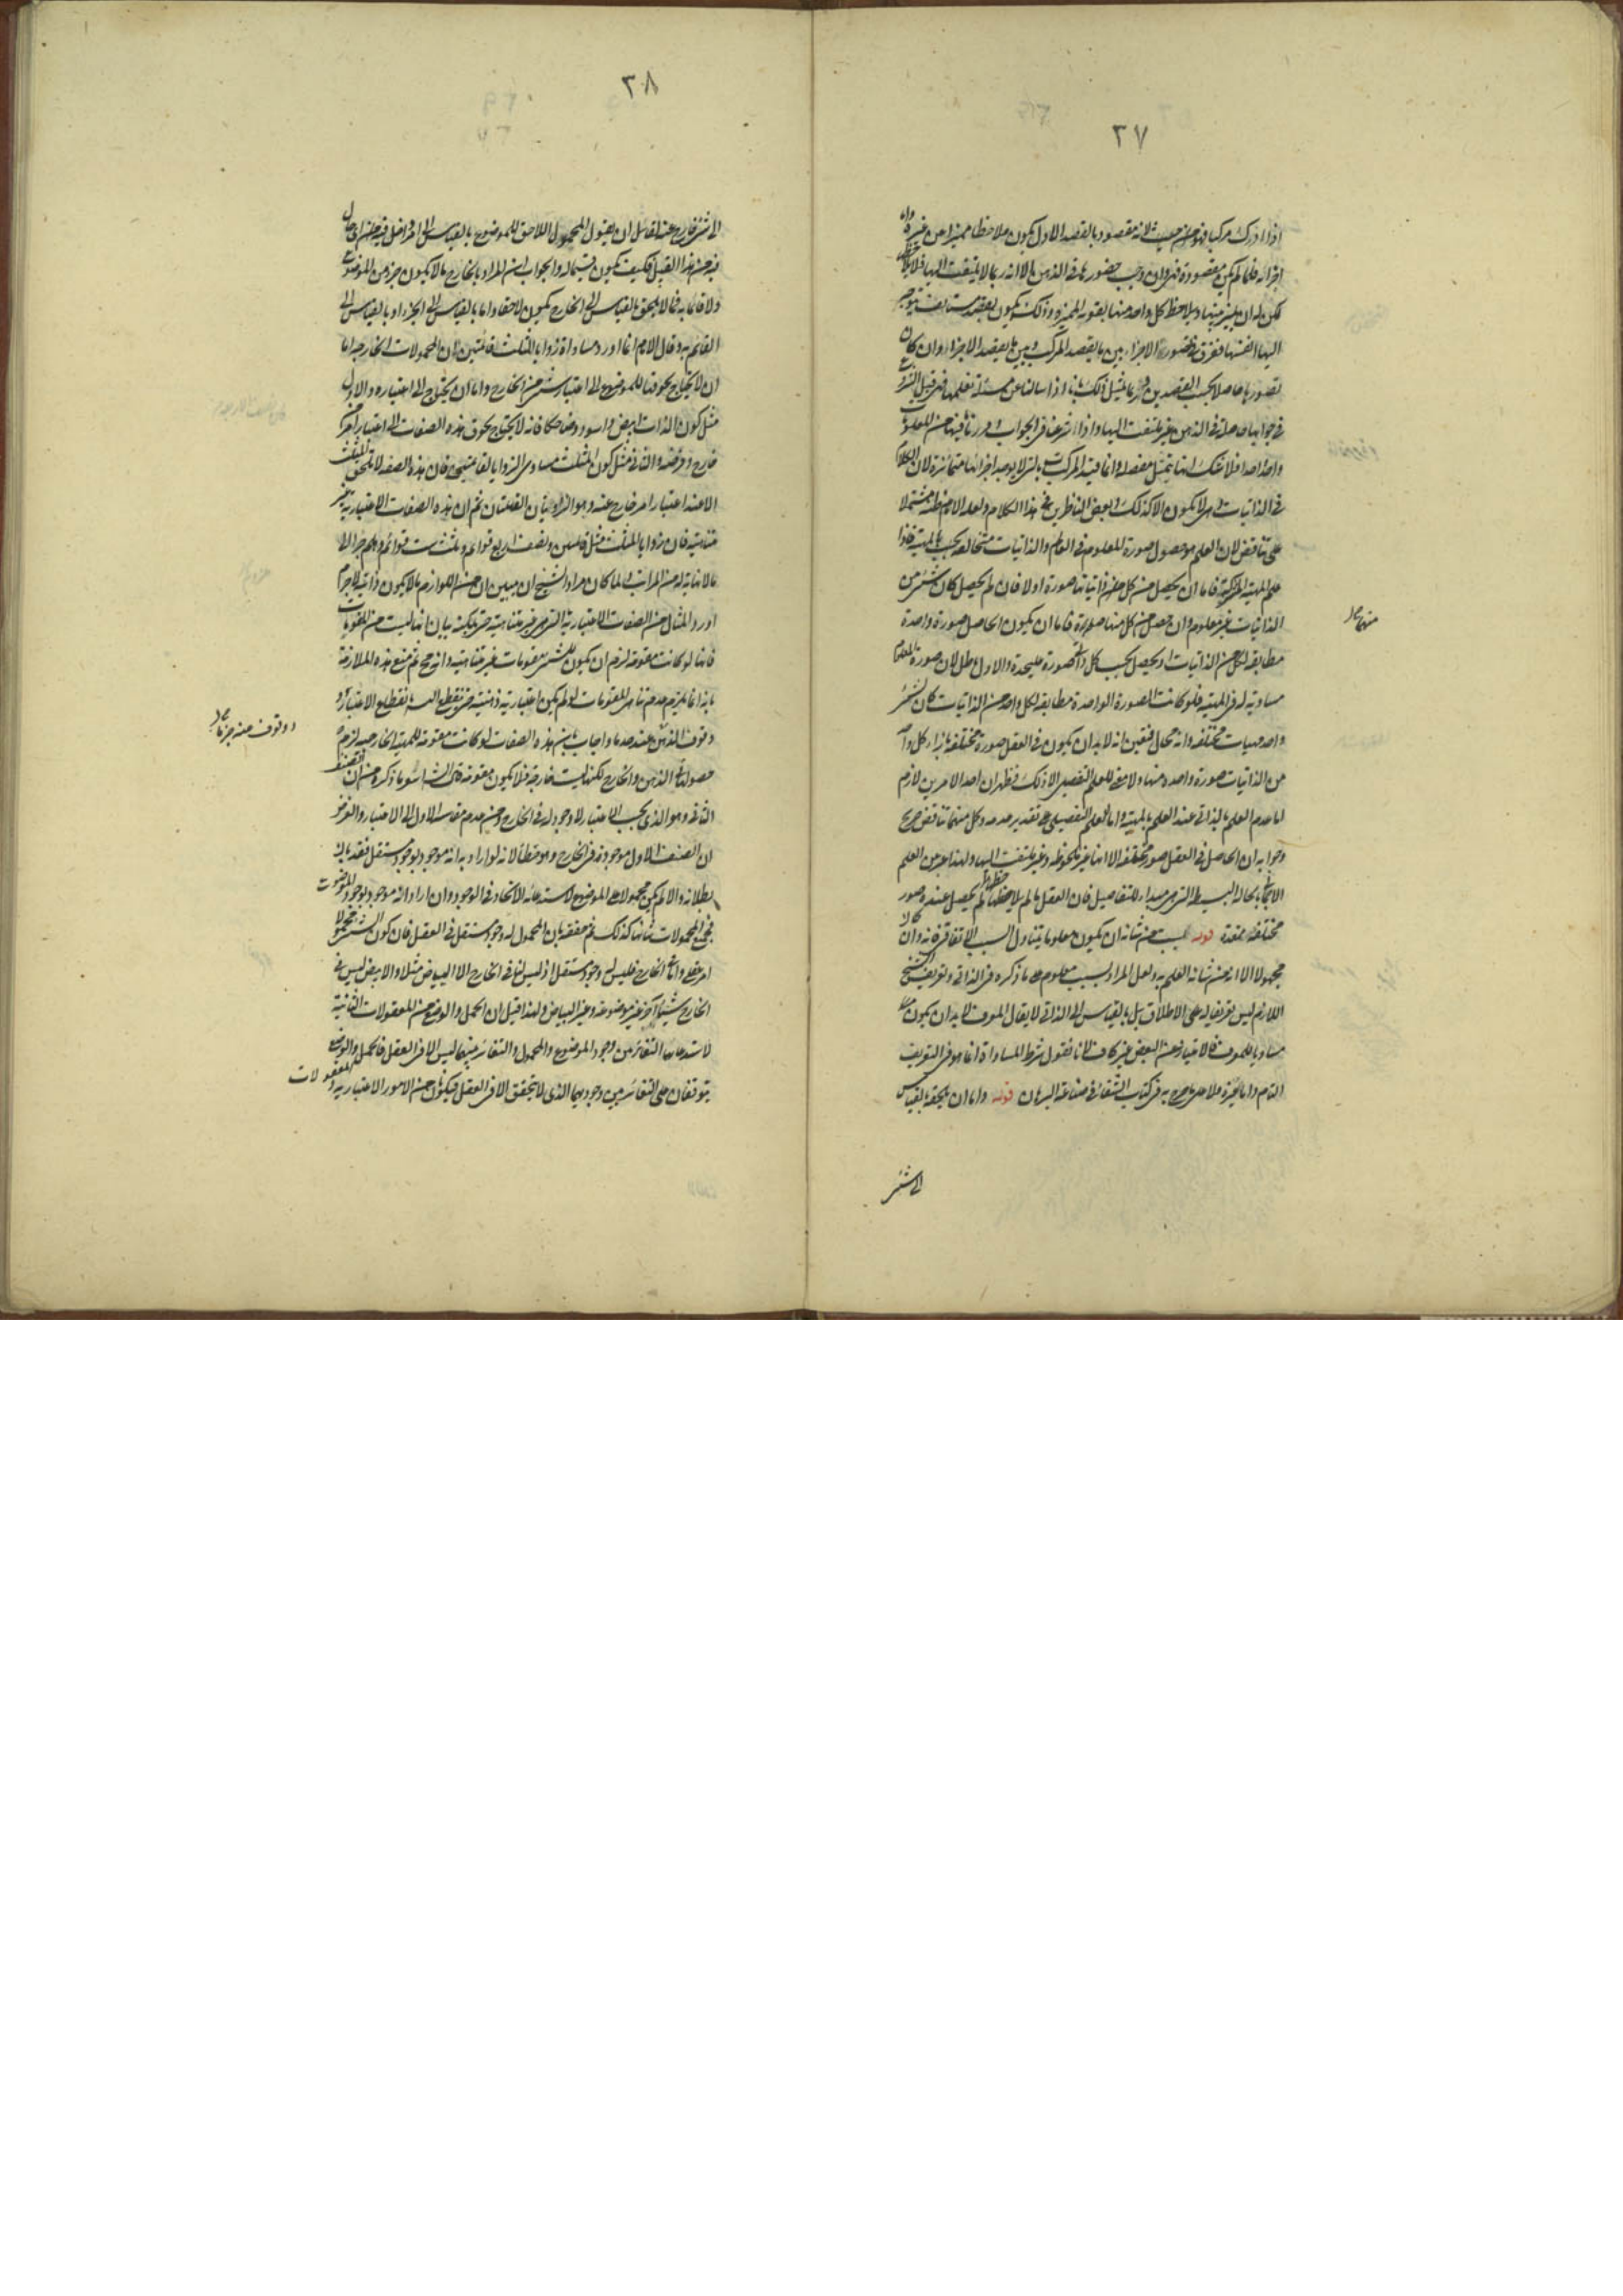 ٢٧
اذا ادرك مركبا فهو من حيث انه مقصود بالقصد الاول يكون ملاحظا مميزا عن غيره واما
اجزائه فلما لم يكن مقصودة فهى وان وجب حضورها فى الذهن الا انه ربما لا يلتفت اليها فلا يلاحظ
لكن له ان يميز بينها ويلاحظ كل واحد منها بقوته المميزة وذلك يكون بقصد مستانف يتوجه
اليها انفسها ففرق بين تصور الاجزاء بين ما بقصد المركب وبين ما بقصد الاجزاء وان كان
تصورها حاصلا بحسب القصدين وربما يمثل ذلك بانا اذا سالنا عن مسئلة نعلمها فهى قبل الشروع
فى جوابها حاصلة فى الذهن غير ملتفت اليها واذا شرعنا فى الجواب ورتبنا فيها من المعلومات
واحدا واحدا فلا شك انها يتمثل مفصلة وانما قيد المركب بالتى لا يوجد اجزائها متمايزة لان الكلام
فى الذاتيات وهى لا يكون الا كذلك وبعض الناظرين فى هذا الكلام ولعله الامام ظنه مشتملا
على تناقض لان العلم هو حصول صورة المعلوم فى العالم والذاتيات متخالفة بحسب المهية فاذا
علم المهية المركبة فاما ان يحصل من كل من ذاتياتها صورة اولا فان لم يحصل كان شئ من
الذاتيات غير معلوم وان حصل من كل منها صورة فاما ان يكون الحاصل صورة واحدة
مطابقة لكل من الذاتيات او يحصل بحسب كل ذاتى صورة عليحدة والاول باطل لان صورة المعلوم
مساوية له فى المهية فلو كانت الصورة الواحدة مطابقة لكل واحد من الذاتيات كان لشئ
واحد مهيات مختلفة وانه محال فتعين انه لا بد ان يكون فى العقل صورة مختلفة بازاء كل واحد
من الذاتيات صورة واحدة منها ولا معنى للعلم التفصيلى الا ذلك فظهر ان احد الامرين لازم
اما عدم العلم بالذاتى عند العلم بالمهية واما العلم التفصيلى على تقدير عدمه وكل منهما تناقض صريح
وجوابه ان الحاصل فى العقل صور مختلفة الا انها غير ملحوظة وغير ملتفت اليها ولهذا عبر عن العلم
الاجمالى بحالة البسيط التى هى مبداء للتفاصيل فان العقل ما لم يلاحظها لم يحصل عنده صور
مختلفة متعددة قوله ليست من شانه ان يكون معلوما يتناول السبب الاتفاقى فانه وان كان
مجهولا الا انه من شانه العلم به ولعل المراد بسبب معلوم هو ما ذكره فى الذاتى وتعريف الشيخ
اللازم ليس تعريفا له على الاطلاق بل بالقياس الى الذاتى لا يقال المعرف لا بد ان يكون
مساويا للمعرف فالامتياز عن البعض غير كاف لانا نقول شرط المساواة انما هو فى التعريف
التام واما غيره فلا على ما صرح به فى كتاب الشفاء فى صناعة البرهان قوله واما ان يلحقه بالقياس
الى شئ
منهما
٢٨
الى شئ خارج عنه لقائل ان يقول المحمول اللاحق للموضوع بالقياس الى امر داخل فيه
من هذا القبيل فكيف يكون قسيما له والجواب ان المراد بالخارج ما لا يكون جزء من الموضوع
ولا قائما به فما لا يلحق بالقياس الى الخارج يكون لاحقا واما بالقياس الى الجزء او بالقياس الى
القائم به وقال الامام انما اورد مساواة زوايا المثلث قائمتين لان المحمولات الخارجية اما
ان لا يحتاج لحوقها للموضوع الى اعتبار شئ من الخارج واما ان يحتاج الى اعتباره والاول
مثل كون الذات ابيض واسود وضاحكا فانه لا يحتاج لحوق هذه الصفات الى اعتبار امر
خارج وفرضه والثانى مثل كون المثلث مساوى الزوايا لقائمتين فان هذه الصفة لا تلحق المثلث
الا عند اعتبار امر خارج عنه وهو الزاويتان القائمتان ثم ان هذه الصفات الاعتبارية غير
متناهية فان زوايا المثلث مثل قائمتين ونصف اربع قوائم وثلث ست قوائم وهلم جرا الى
ما لا نهاية له من المراتب ولما كان مراد الشيخ ان يبين ان من اللوازم ما لا يكون ذاتيا لا جرم
اورد المثال من الصفات الاعتبارية التى هى غير متناهية حتى يمكنه بيان انها ليست من المقومات
فانها لو كانت مقومة لزم ان يكون للشئ مقومات غير متناهية وانه مح ثم منع هذه الملازمة
بانه انما يلزم عدم تناهى المقومات لو لم يكن اعتبارية ذهنية حتى ينقطع السلسلة بانقطاع الاعتبار او
وقوف الذهن عند حد ما واجاب بان هذه الصفات لو كانت مقومة للمهية الخارجية لزم
حصولها فى الذهن والخارج لكنها ليست خارجية فلا يكون مقومة قال الشارح
الثانى وهو الذى بحسب الاعتبار لا وجود له فى الخارج
ان الصنف الاول موجود فى الخارج وهو خطأ لانه لو اراد به انه موجود بوجود مستقل فقد بان
بطلانه والا لم يكن محمولا على الموضوع لاستدعائه الاتحاد فى الوجود وان اراد انه موجود بوجود الموضوع
فجميع المحمولات شانها كذلك ثم حققه بان المحمول له وجود مستقل فى العقل فان كون الشئ محمولا
امر عقلى واما فى الخارج فليس له وجود مستقل اذ ليس لنا فى الخارج الا البياض مثلا والابيض ليس فى
الخارج شيئا آخر غير موضوعه وغير البياض ولهذا قيل ان الحمل والوضع من المعقولات الثانية
لاستدعائها التغاير من وجود الموضوع والمحمول والتغاير بينهما ليس الا فى العقل فالحمل والوضع
يتوقفان على التغاير بين وجوديهما الذى لا يتحقق الا فى العقل فيكونان من الامور الاعتبارية والمعقولات
او وقوف